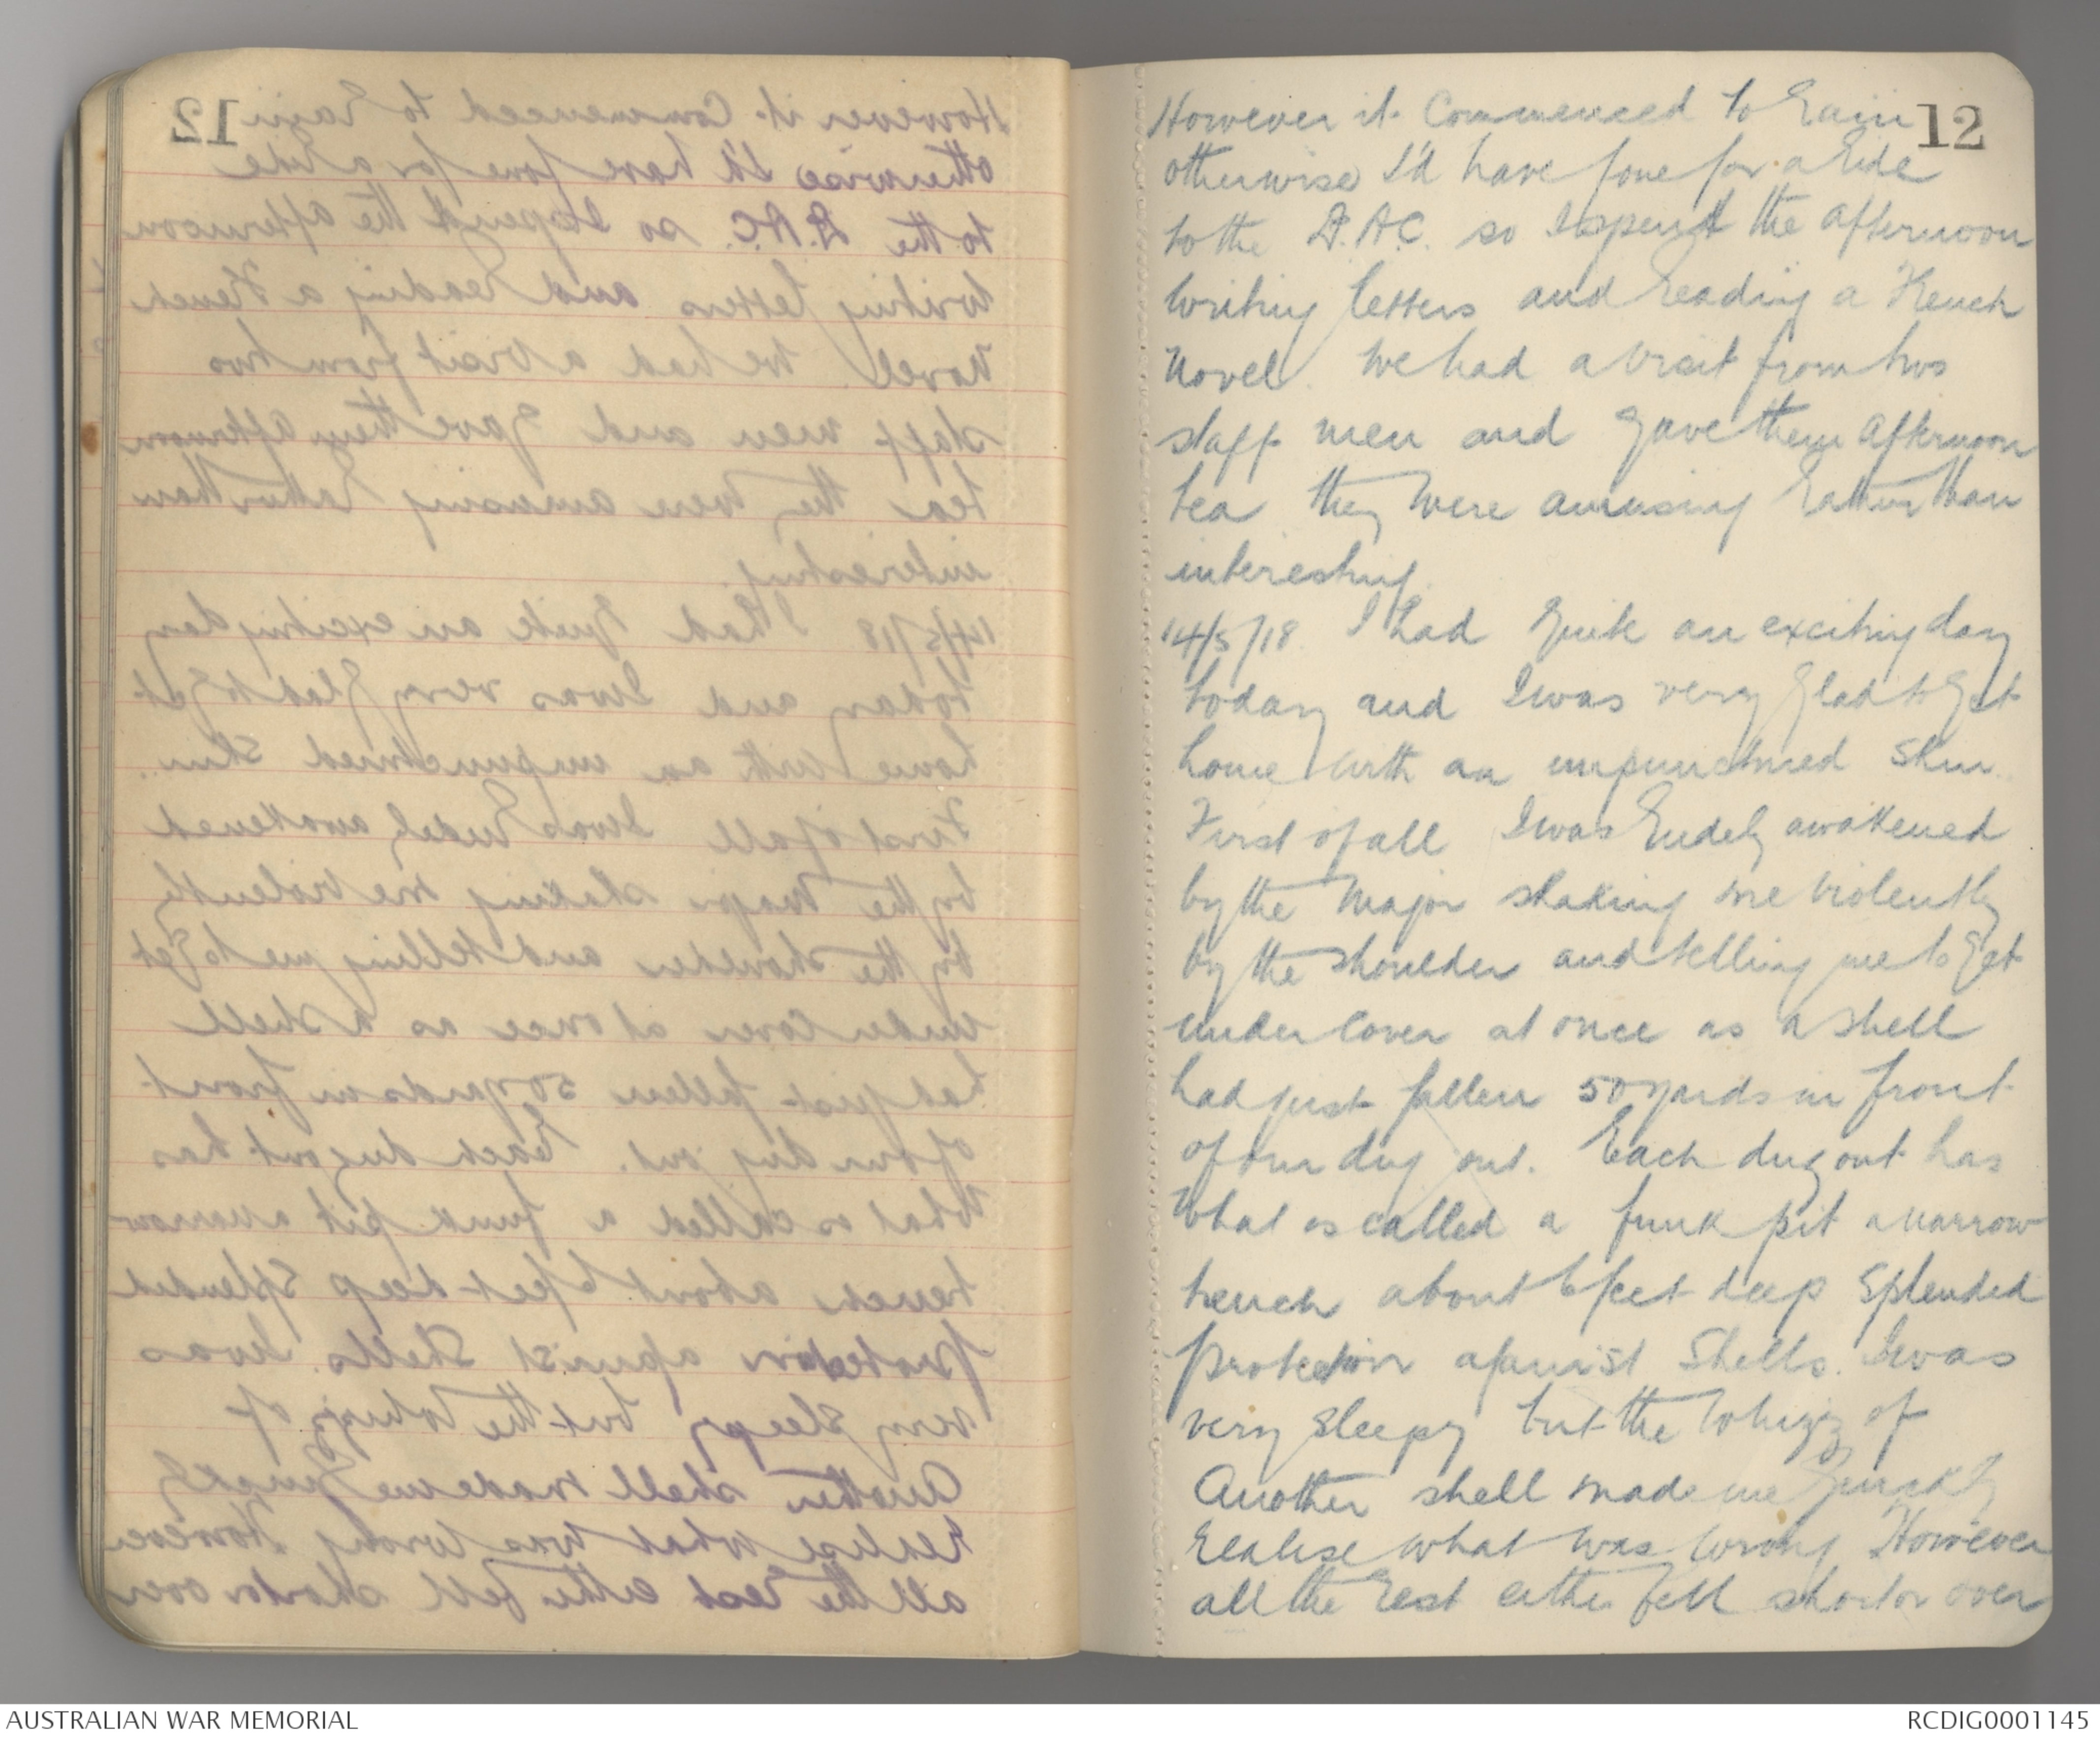 12
However it commenced to rain
otherwise I'd have gone for a ride
to the D.A.C. so I spent the afternoon
writing letters and reading a French
novel. We had a visit from two
staff men and gave them afternoon
tea they were amusing rather than
interesting.
14/5/18 I had quite an exciting day
today and I was very glad to get
home with an unpunctured skin.
First of all I was rudely awakened
by the Major shaking me violently
by the shoulder and telling me to get
under cover at once as a shell
had just fallen 50 yards in front
of our dug out. Each dug out has
what is called a funk pit a narrow
trench about 6 feet deep splended
protection against shells. I was
very sleepy but the whizz of
another shell made me quickly
realise what was wrong However
all the rest either fell short or over
AUSTRALIAN WAR MEMORIAL
RCDIG0001145